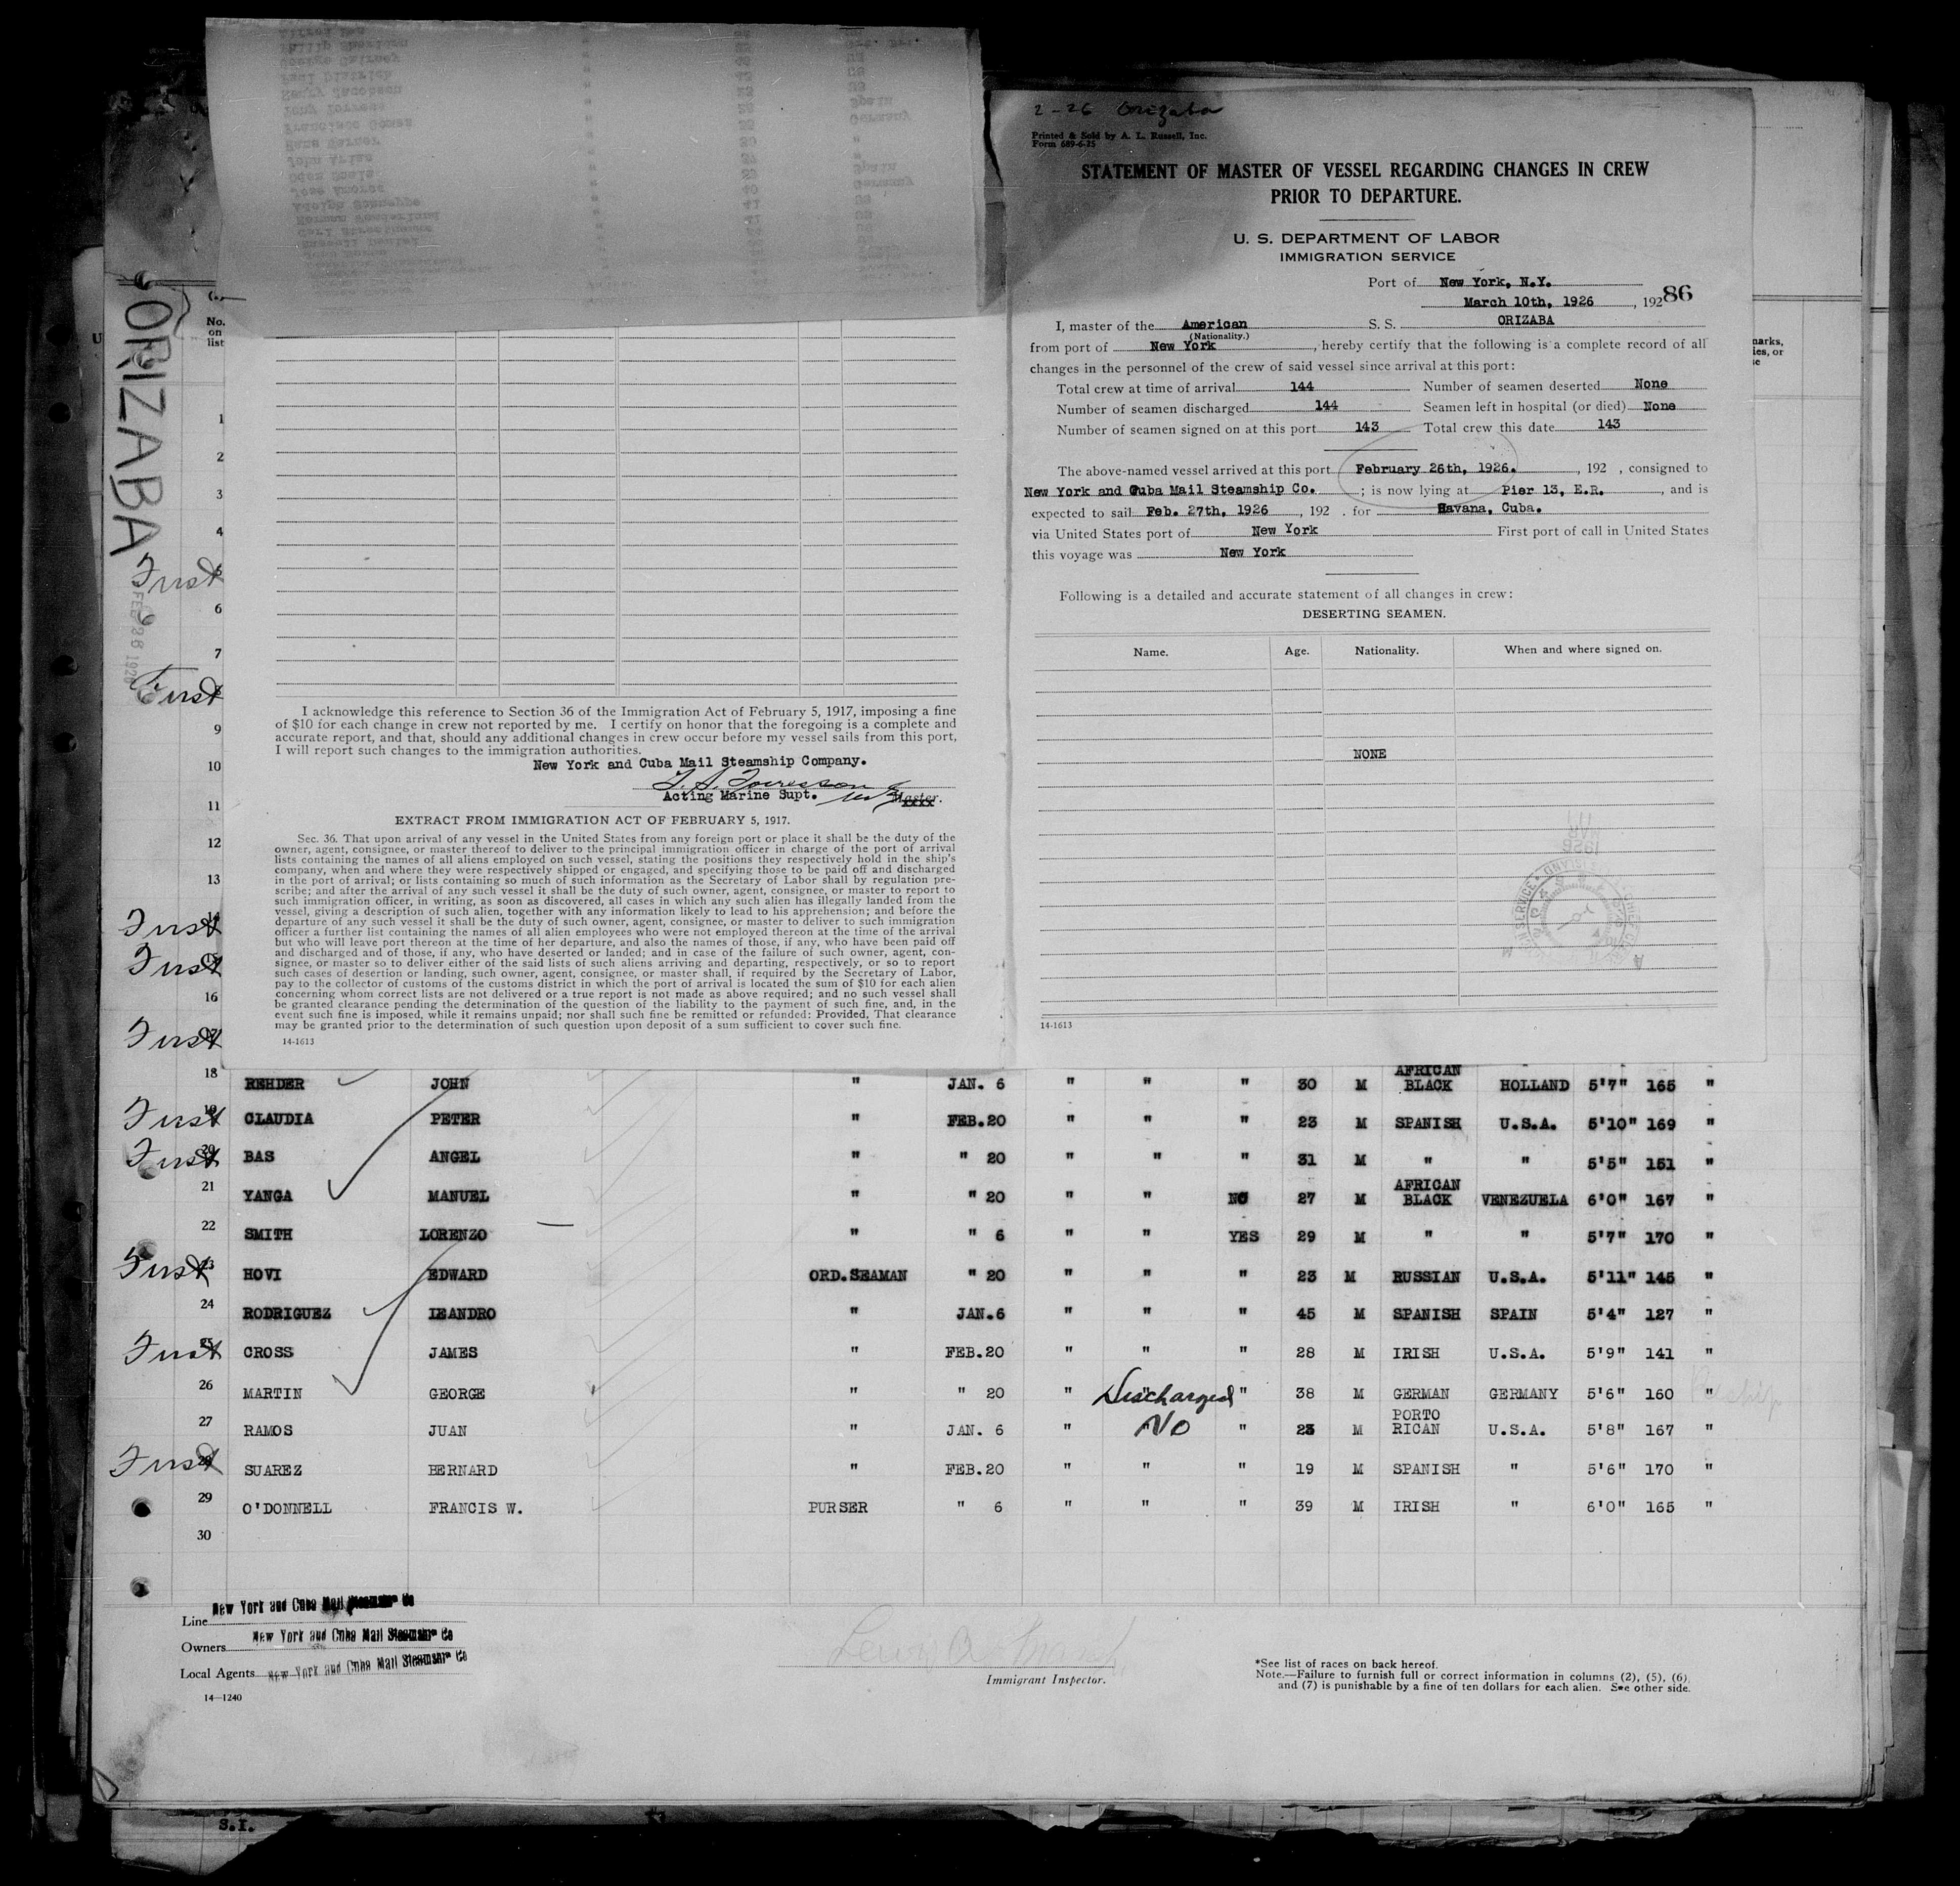 2-26 Orizaba
Printed & Sold by A. L. Russell, Inc.
Form 689-6-25
STATEMENT OF MASTER OF VESSEL REGARDING CHANGES IN CREW
PRIOR TO DEPARTURE.
U. S. DEPARTMENT OF LABOR
IMMIGRATION SERVICE
Port of New York, N.Y.
March 10th, 1926, 192 86
I, master of the American S. S. ORIZABA
(Nationality.)
from port of New York, hereby certify that the following is a complete record of all
changes in the personnel of the crew of said vessel since arrival at this port:
Total crew at time of arrival 144 Number of seamen deserted None
Number of seamen discharged 144 Seamen left in hospital (or died) None
Number of seamen signed on at this port 143 Total crew this date 143
The above-named vessel arrived at this port February 26th, 1926., 192 , consigned to
New York and Cuba Mail Steamship Co. ; is now lying at Pier 13, E.R. , and is
expected to sail Feb. 27th, 1926 , 192 . for Havana, Cuba.
via United States port of New York First port of call in United States
this voyage was New York
Following is a detailed and accurate statement of all changes in crew:
DESERTING SEAMEN.
Name. Age. Nationality. When and where signed on.
NONE
14-1613
ORIZABA
No.
on
list
1
2
3
4
First 5
6
7
First
9
10
11
12
13
First 14
First 15
16
First 17
I acknowledge this reference to Section 36 of the Immigration Act of February 5, 1917, imposing a fine
of $10 for each change in crew not reported by me. I certify on honor that the foregoing is a complete and
accurate report, and that, should any additional changes in crew occur before my vessel sails from this port,
I will report such changes to the immigration authorities.
New York and Cuba Mail Steamship Company.
Acting Marine Supt. Master.
EXTRACT FROM IMMIGRATION ACT OF FEBRUARY 5, 1917.
Sec. 36. That upon arrival of any vessel in the United States from any foreign port or place it shall be the duty of the
owner, agent, consignee, or master thereof to deliver to the principal immigration officer in charge of the port of arrival
lists containing the names of all aliens employed on such vessel, stating the positions they respectively hold in the ship's
company, when and where they were respectively shipped or engaged, and specifying those to be paid off and discharged
in the port of arrival; or lists containing so much of such information as the Secretary of Labor shall by regulation pre-
scribe; and after the arrival of any such vessel it shall be the duty of such owner, agent, consignee, or master to report to
such immigration officer, in writing, as soon as discovered, all cases in which any such alien has illegally landed from the
vessel, giving a description of such alien, together with any information likely to lead to his apprehension; and before the
departure of any such vessel it shall be the duty of such owner, agent, consignee, or master to deliver to such immigration
officer a further list containing the names of all alien employees who were not employed thereon at the time of the arrival
but who will leave port thereon at the time of her departure, and also the names of those, if any, who have been paid off
and discharged and of those, if any, who have deserted or landed; and in case of the failure of such owner, agent, con-
signee, or master so to deliver either of the said lists of such aliens arriving and departing, respectively, or so to report
such cases of desertion or landing, such owner, agent, consignee, or master shall, if required by the Secretary of Labor,
pay to the collector of customs of the customs district in which the port of arrival is located the sum of $10 for each alien
concerning whom correct lists are not delivered or a true report is not made as above required; and no such vessel shall
be granted clearance pending the determination of the question of the liability to the payment of such fine, and, in the
event such fine is imposed, while it remains unpaid; nor shall such fine be remitted or refunded: Provided, That clearance
may be granted prior to the determination of such question upon deposit of a sum sufficient to cover such fine.
14-1613
18 REHDER JOHN " JAN. 6 " " " 30 M AFRICAN BLACK HOLLAND 5'7" 165 "
First 19 CLAUDIA PETER " FEB.20 " " " 23 M SPANISH U.S.A. 5'10" 169 "
First 20 BAS ANGEL " " 20 " " " 31 M " " 5'5" 151 "
21 YANGA MANUEL " " 20 " " NO 27 M AFRICAN BLACK VENEZUELA 6'0" 167 "
22 SMITH LORENZO " " 6 " " YES 29 M " " 5'7" 170 "
First 23 HOVI EDWARD ORD.SEAMAN " 20 " " " 23 M RUSSIAN U.S.A. 5'11" 145 "
24 RODRIGUEZ LEANDRO " JAN.6 " " " 45 M SPANISH SPAIN 5'4" 127 "
First 25 CROSS JAMES " FEB.20 " " " 28 M IRISH U.S.A. 5'9" 141 "
26 MARTIN GEORGE " " 20 " Discharged " 38 M GERMAN GERMANY 5'6" 160 "
27 RAMOS JUAN " JAN. 6 " No " 23 M PORTO RICAN U.S.A. 5'8" 167 "
First 28 SUAREZ BERNARD " FEB.20 " " " 19 M SPANISH " 5'6" 170 "
29 O'DONNELL FRANCIS W. PURSER " 6 " " " 39 M IRISH " 6'0" 165 "
30
Line New York and Cuba Mail Steamship Co
Owners New York and Cuba Mail Steamship Co
Local Agents New York and Cuba Mail Steamship Co
14—1240
Immigrant Inspector.
*See list of races on back hereof.
Note.—Failure to furnish full or correct information in columns (2), (5), (6)
and (7) is punishable by a fine of ten dollars for each alien. See other side.
S.I.